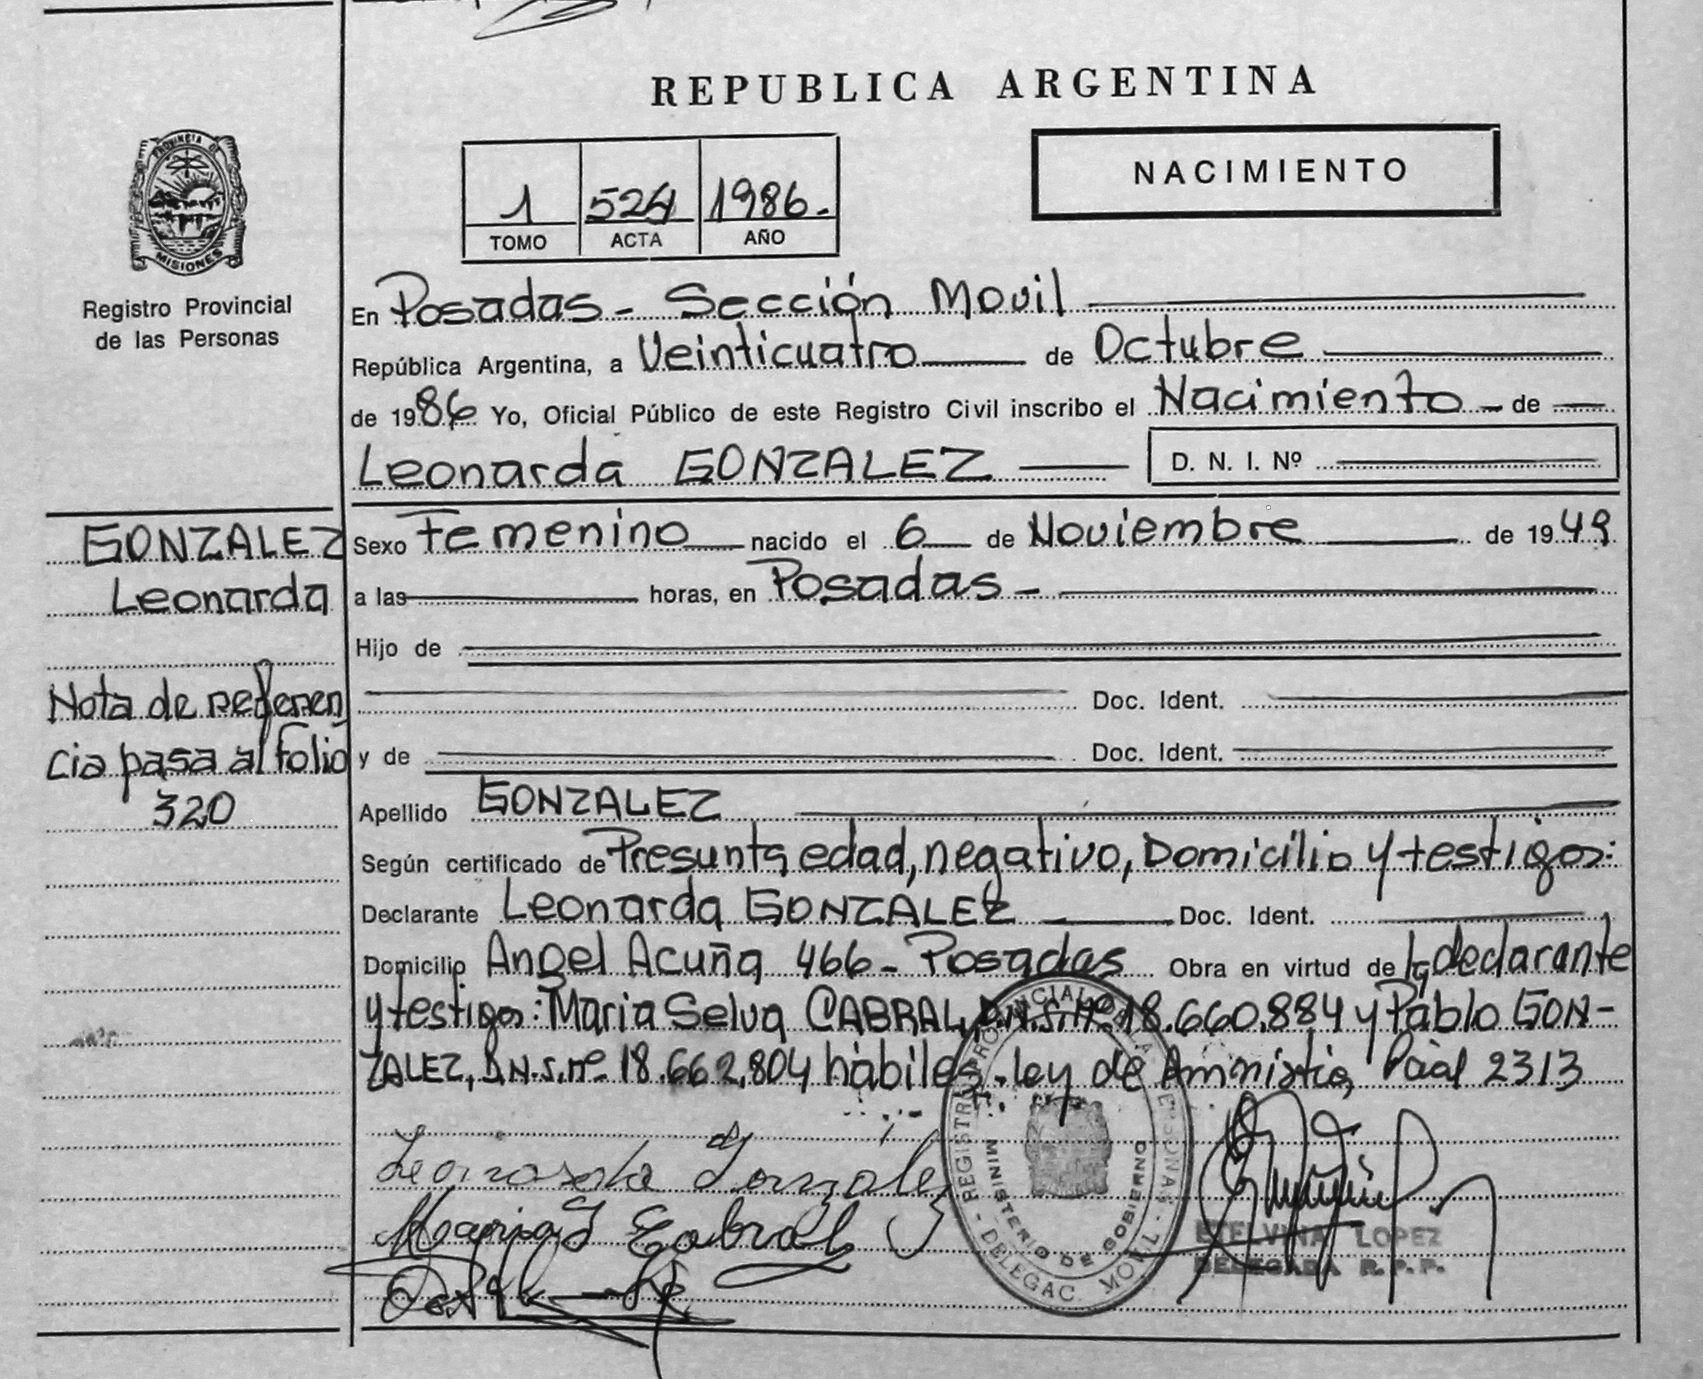 REPUBLICA ARGENTINA
PROVINCIA DE
MISIONES
Registro Provincial
de las Personas
1 524 1986.
TOMO ACTA AÑO
NACIMIENTO
En Posadas - Sección Movil
República Argentina, a Veinticuatro de Octubre
de 1986 Yo, Oficial Público de este Registro Civil inscribo el Nacimiento - de
Leonarda GONZALEZ D. N. I. Nº
GONZALEZ
Leonarda
Nota de referen
cia pasa al folio
320
Sexo Femenino nacido el 6 de Noviembre de 1949
a las horas, en Posadas -
Hijo de
Doc. Ident.
y de Doc. Ident.
Apellido GONZALEZ
Según certificado de Presunta edad, negativo, Domicilio y testigos:
Declarante Leonarda GONZALEZ Doc. Ident.
Domicilio Angel Acuña 466 - Posadas Obra en virtud de la declarante
y testigos: Maria Selva CABRAL, D.N.I. Nº 18.660.884 y Pablo GON-
ZALEZ, D.N.I. Nº 18.662.804 hábiles - ley de Aminístia, Pcial 2313
Leonarda Gonzalez
Maria S Cabral
REGISTRO PROVINCIAL DE LAS PERSONAS - DELEGAC. MOVIL -
MINISTERIO DE GOBIERNO
ETELVINA LOPEZ
DELEGADA R. P. P.